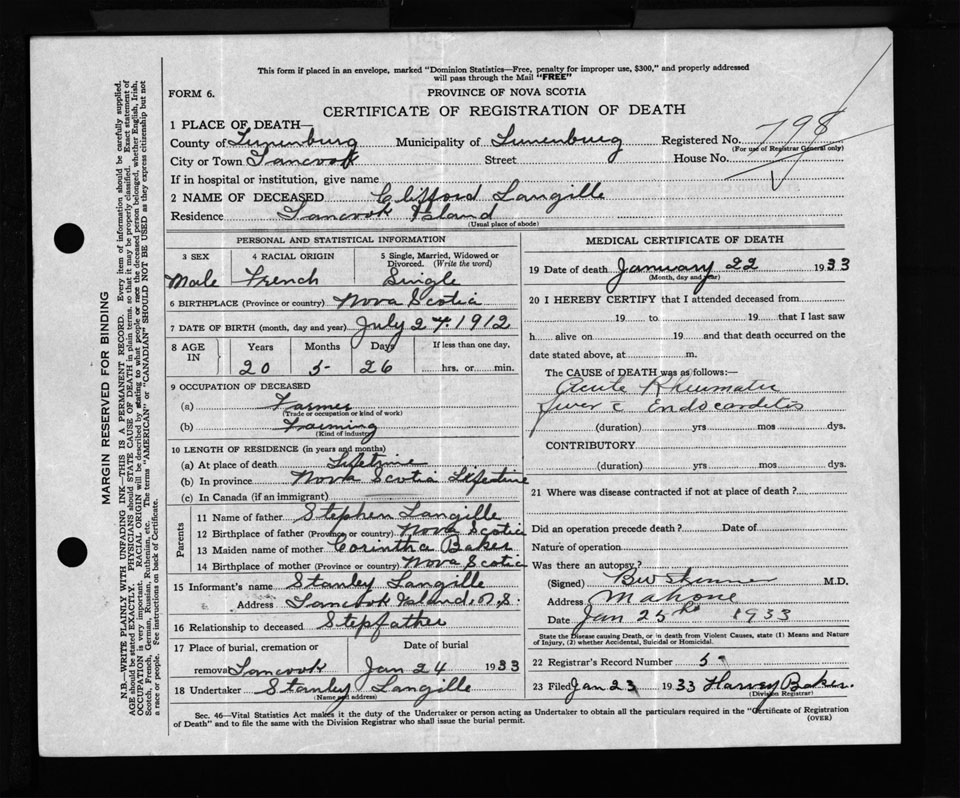 This form if placed in an envelope, marked "Dominion Statistics—Free, penalty for improper use, $300," and properly addressed
will pass through the Mail "FREE"
FORM 6.
PROVINCE OF NOVA SCOTIA
CERTIFICATE OF REGISTRATION OF DEATH
1 PLACE OF DEATH—
County of Lunenburg Municipality of Lunenburg Registered No. 798
(For use of Registrar General only)
City or Town Tancook Street House No.
If in hospital or institution, give name
2 NAME OF DECEASED Clifford Langille
Residence Tancook Island
(Usual place of abode)
PERSONAL AND STATISTICAL INFORMATION
3 SEX 4 RACIAL ORIGIN 5 Single, Married, Widowed or Divorced. (Write the word)
Male French Single
6 BIRTHPLACE (Province or country) Nova Scotia
7 DATE OF BIRTH (month, day and year) July 27. 1912
8 AGE IN Years Months Days If less than one day.
20 5 26 hrs. or min.
9 OCCUPATION OF DECEASED
(a) Farmer
(Trade or occupation or kind of work)
(b) Farming
(Kind of industry)
10 LENGTH OF RESIDENCE (in years and months)
(a) At place of death Lifetime
(b) In province Nova Scotia Lifetime
(c) In Canada (if an immigrant)
Parents
11 Name of father Stephen Langille
12 Birthplace of father (Province or country) Nova Scotia
13 Maiden name of mother Corintha Baker
14 Birthplace of mother (Province or country) Nova Scotia
15 Informant's name Stanley Langille
Address Tancook Island, N.S.
16 Relationship to deceased Stepfather
17 Place of burial, cremation or Date of burial
removal Tancook Jan 24 1933
18 Undertaker Stanley Langille
(Name and address)
MEDICAL CERTIFICATE OF DEATH
19 Date of death January 22 1933
(Month, day and year)
20 I HEREBY CERTIFY that I attended deceased from
19 to 19 that I last saw
h alive on 19 and that death occurred on
date stated above, at m.
The CAUSE of DEATH was as follows:—
Acute Rheumatic
fever c Endocarditis
(duration) yrs mos dys.
CONTRIBUTORY
(duration) yrs mos dys.
21 Where was disease contracted if not at place of death?
Did an operation precede death? Date of
Nature of operation
Was there an autopsy?
(Signed) B W Skinner M.D.
Address Mahone
Date Jan 25th 1933
State the Disease causing Death, or in death from Violent Causes, state (1) Means and Nature
of Injury, (2) whether Accidental, Suicidal or Homicidal.
22 Registrar's Record Number 5
23 Filed Jan 23 1933 Harvey Baker.
(Division Registrar)
Sec. 46—Vital Statistics Act makes it the duty of the Undertaker or person acting as Undertaker to obtain all the particulars required in the "Certificate of Registration
of Death" and to file the same with the Division Registrar who shall issue the burial permit.
(OVER)
MARGIN RESERVED FOR BINDING
N.B.—WRITE PLAINLY WITH UNFADING INK—THIS IS A PERMANENT RECORD. Every item of information should be carefully supplied.
AGE should be stated EXACTLY. PHYSICIANS should STATE CAUSE OF DEATH in plain terms, so that it may be properly classified. Exact statement of
OCCUPATION is very important. RACIAL ORIGIN will be described by stating to what people or race the deceased person belonged, whether English, Irish,
Scotch, French, German, Russian, Ruthenian, etc. The terms "AMERICAN" or "CANADIAN" SHOULD NOT BE USED as they express citizenship but not
a race or people. Fee instructions on back of Certificate.